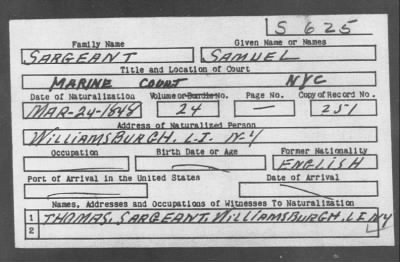 S 625
Family Name Given Name or Names
SARGEANT SAMUEL
Title and Location of Court
MARINE COURT NYC
Date of Naturalization Volume or Bundle No. Page No. Copy of Record No.
MAR-24-1848 24 — 251
Address of Naturalized Person
WILLIAMSBURGH. L.I. N-Y
Occupation Birth Date or Age Former Nationality
ENGLISH
Port of Arrival in the United States Date of Arrival
Names, Addresses and Occupations of Witnesses To Naturalization
1 THOMAS. SARGEANT. WILLIAMSBURGH. L.I NY
2